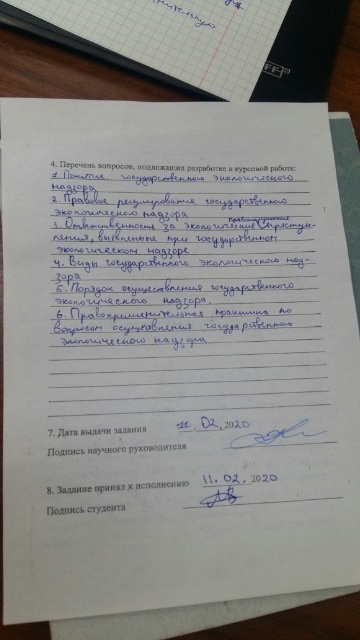 4. Перечень вопросов, подлежащих разработке в курсовой работе:
1. Понятие государственного экологического
надзора
2. Правовое регулирование государственного
экологического надзора
правонарушения
3. Ответственность за экологические преступ-
ления, выявленные при государственном
экологическом надзоре
4. Виды государственного экологического над-
зора
5. Порядок осуществления государственного
экологического надзора.
6. Правоприменительная практика по
вопросам осуществления государственного
экологического надзора
7. Дата выдачи задания 11. 02. 2020
Подпись научного руководителя
8. Задание принял к исполнению 11. 02. 2020
Подпись студента